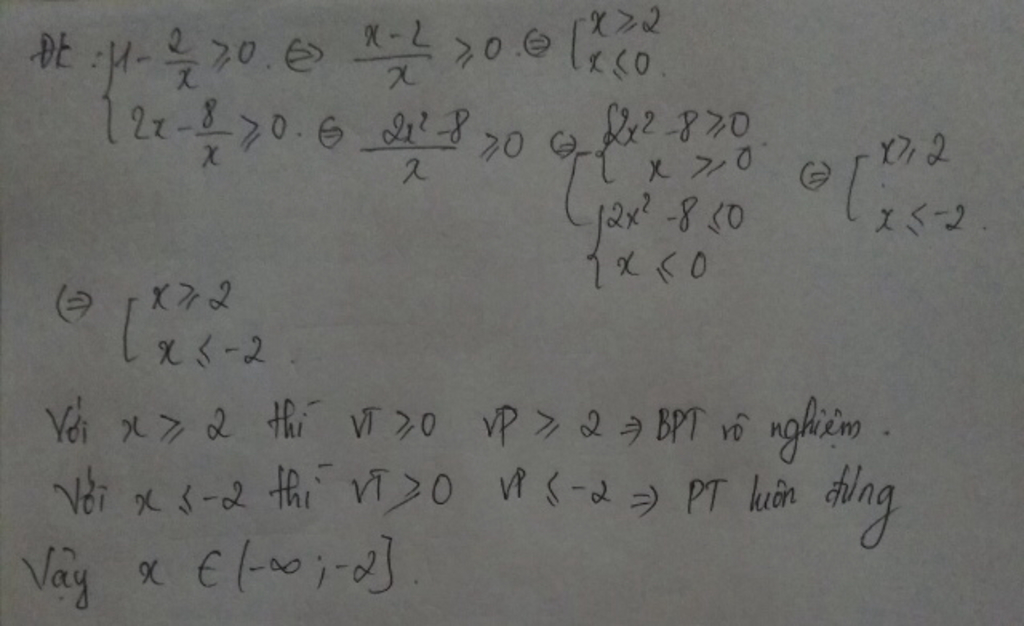 ĐK: { 1 - 2/x ≥ 0. ⇔ (x-2)/x ≥ 0. ⇔ [ x ≥ 2
x ≤ 0.
2x - 8/x ≥ 0. ⇔ (2x² - 8)/x ≥ 0 ⇔ [ { 2x² - 8 ≥ 0
x ≥ 0
{ 2x² - 8 ≤ 0
x ≤ 0
⇔ [ x ≥ 2
x ≤ -2.
⇔ [ x ≥ 2
x ≤ -2.
Với x ≥ 2 thì VT ≥ 0 VP ≥ 2 ⇒ BPT vô nghiệm.
Với x ≤ -2 thì VT ≥ 0 VP ≤ -2 ⇒ PT luôn đúng
Vậy x ∈ (-∞; -2].